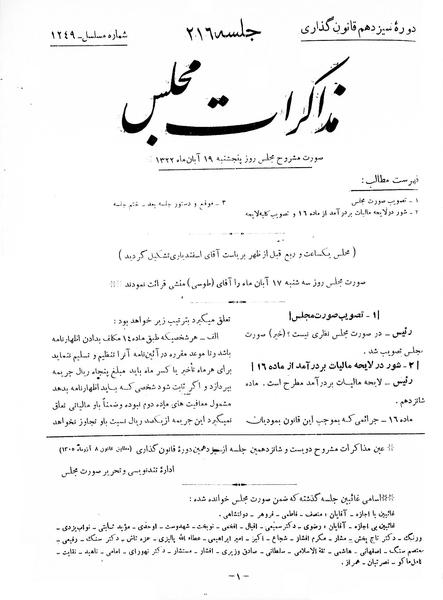 دورهٔ سیزدهم قانون گذاری
جلسه ۲۱۶
شماره مسلسل ـ ۱۲۴۹
مذاکرات مجلس
صورت مشروح مجلس روز پنجشنبه ۱۹ آبان ماه ۱۳۲۲
فهرست مطالب:
۱ ـ تصویب صورت مجلس
۲ ـ شور در لایحه مالیات بر درآمد از ماده ۱۶ و تصویب کلیه لایحه
۳ ـ موقع و دستور جلسه بعد ـ ختم جلسه
(مجلس یکساعت و ربع قبل از ظهر بریاست آقای اسفندیاری تشکیل گردید)
صورت مجلس روز سه شنبه ۱۷ آبان ماه را آقای (طوسی) منشی قرائت نمودند
۱ ـ تصویب صورت مجلس
رئیس ـ در صورت مجلس نظری نیست؟ (خیر) صورت
مجلس تصویب شد.
۲ ـ شور در لایحه مالیات بر درآمد از ماده ۱۶
رئیس ـ لایحه مالیات بر درآمد مطرح است. ماده
شانزدهم.
ماده ۱۶ ـ جرائمی که بموجب این قانون بمودیان
تعلق میگیرد بترتیب زیر خواهد بود:
الف ـ هر شخصیکه طبق ماده ۱۴ مکلف بدادن اظهارنامه
باشد و تا موعد مقرره در آئین نامه آنرا تنظیم و تسلیم ننماید
برای هر ماه تأخیر یا کسر ماه باید مبلغ پنجاه ریال جریمه
بپردازد و اگر ثابت شود شخصی که باید اظهارنامه بدهد
مشمول معافیت های ماده دوم نبوده و ضمناً باو مالیاتی تعلق
نمیگیرد این جریمه از یکصد ریال نسبت باو تجاوز نخواهد
عین مذاکرات مشروح دویست و شانزدهمین جلسه از سیزدهمین دورهٔ قانون گذاری (مطابق قانون ۸ آذرماه ۱۳۰۵)
اداره تندنویسی و تحریر صورت مجلس
اسامی غائبین جلسه گذشته که ضمن صورت مجلس خوانده شده:
غائبین با اجازه ـ آقایان: منصف ـ فاطمی ـ فروهر ـ دولتشاهی.
غائبین بی اجازه ـ آقایان: رضوی ـ دکتر سمیعی ـ اقبال ـ افخمی ـ نوبخت ـ شهدوست ـ اوحدی ـ مؤید ثابتی ـ نواب یزدی ـ
دکتر تاج بخش ـ مشار ـ مکرم افشار ـ شجاع ـ اکبر ـ امیر ابراهیمی ـ عطاء الله پالیزی ـ عزه تاش ـ دکتر سنگ ـ رفیعی ـ
معتصم سنک ـ اصفهانی ـ هاشمی ـ ثقة الاسلامی ـ سلطانی ـ صادق وزیری ـ افشار ـ مستشار ـ دکتر تهورای ـ امامی ـ ناهید ـ نقابت ـ
نصرتیان ـ همراز.
ـ ۱ ـ